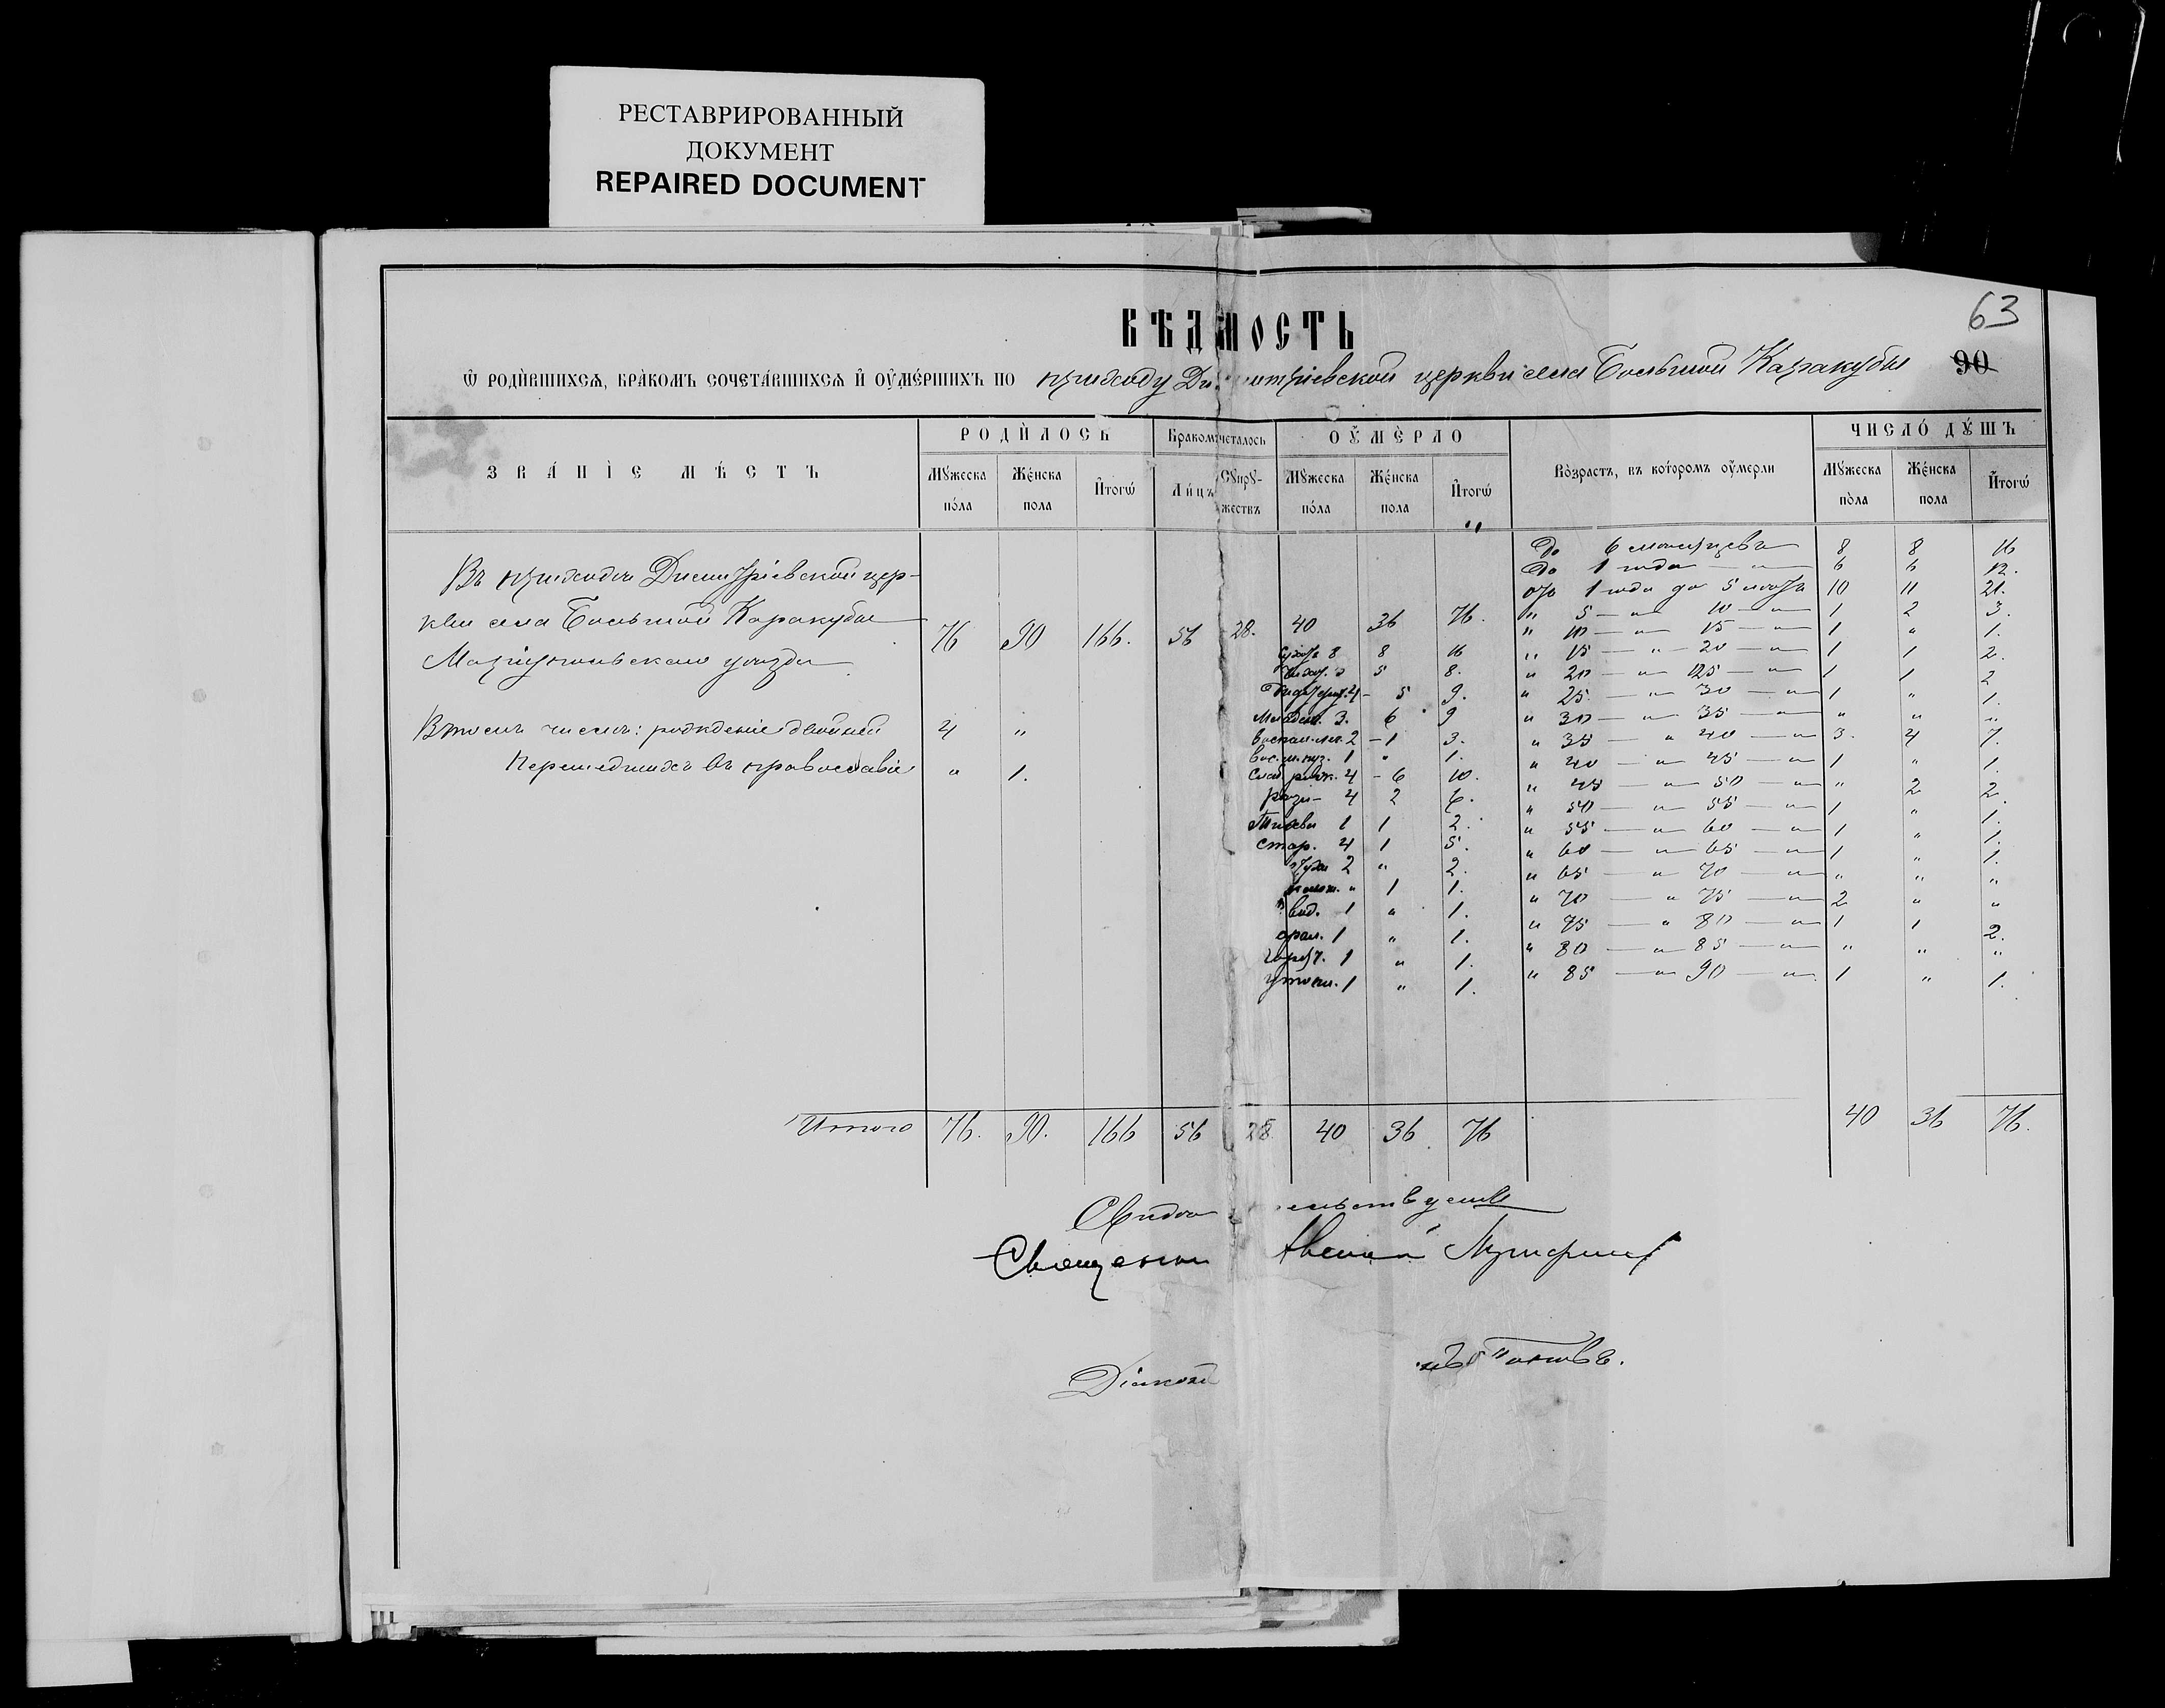 РЕСТАВРИРОВАННЫЙ
ДОКУМЕНТ
REPAIRED DOCUMENT
63
ВѢДОМОСТЬ
Ѡ РОДИВШИХСЯ, БРАКОМЪ СОЧЕТАВШИХСЯ И ОУМЕРШИХЪ ПО приходу Димитріевской церкви села Большой Каракубы 90
ЗВАНІЕ МѢСТЪ РОДИЛОСЬ Бракомъ сочеталось ОУМЕРЛО Возрастъ, въ которомъ оумерли ЧИСЛО ДУШЪ
Мужеска пола Женска пола Итогѡ Лицъ Супружествъ Мужеска пола Женска пола Итогѡ Мужеска пола Женска пола Итогѡ
Въ приходѣ Димитріевской цер-
кви села Большой Каракубы
Маріупольскаго уѣзда
76 90 166. 56 28. 40 36 76.
Въ томъ числѣ: рожденіе двойней 4 "
Перешедшихъ въ православіе " 1.
8 8 16
5 8.
4 - 5 9.
3. 6 9
2 - 1 3.
1 " 1.
4 - 6 10.
4 2 6.
1 1 2.
стар. 4 1 5.
2 " 2.
" 1 1.
1 " 1.
1 " 1.
1 " 1.
утопл. 1 " 1.
До 6 мѣсяцевъ 8 8 16
До 1 года 6 6 12.
отъ 1 года до 5 лѣтъ 10 11 21.
" 5 — " 10 — " 1 2 3.
" 10 — " 15 — " 1 " 1.
" 15 — " 20 — " 1 1 2.
" 20 — " 25 — " 1 1 2
" 25 — " 30 — " 1 " 1.
" 30 — " 35 — " " " "
" 35 — " 40 — " 3. 4 7.
" 40 — " 45 — " 1 " 1.
" 45 — " 50 — " " 2 2
" 50 — " 55 — " 1 " 1.
" 55 — " 60 — " 1 " 1.
" 60 — " 65 — " 1 " 1.
" 65 — " 70 — " " " "
" 70 — " 75 — " 2 " "
" 75 — " 80 — " 1 1 2.
" 80 — " 85 — " " " "
" 85 — " 90 — " 1 " 1.
Итого 76. 90. 166 56 28 40 36 76 40 36 76.
Свидѣтельствуемъ
Священни
Діаконъ